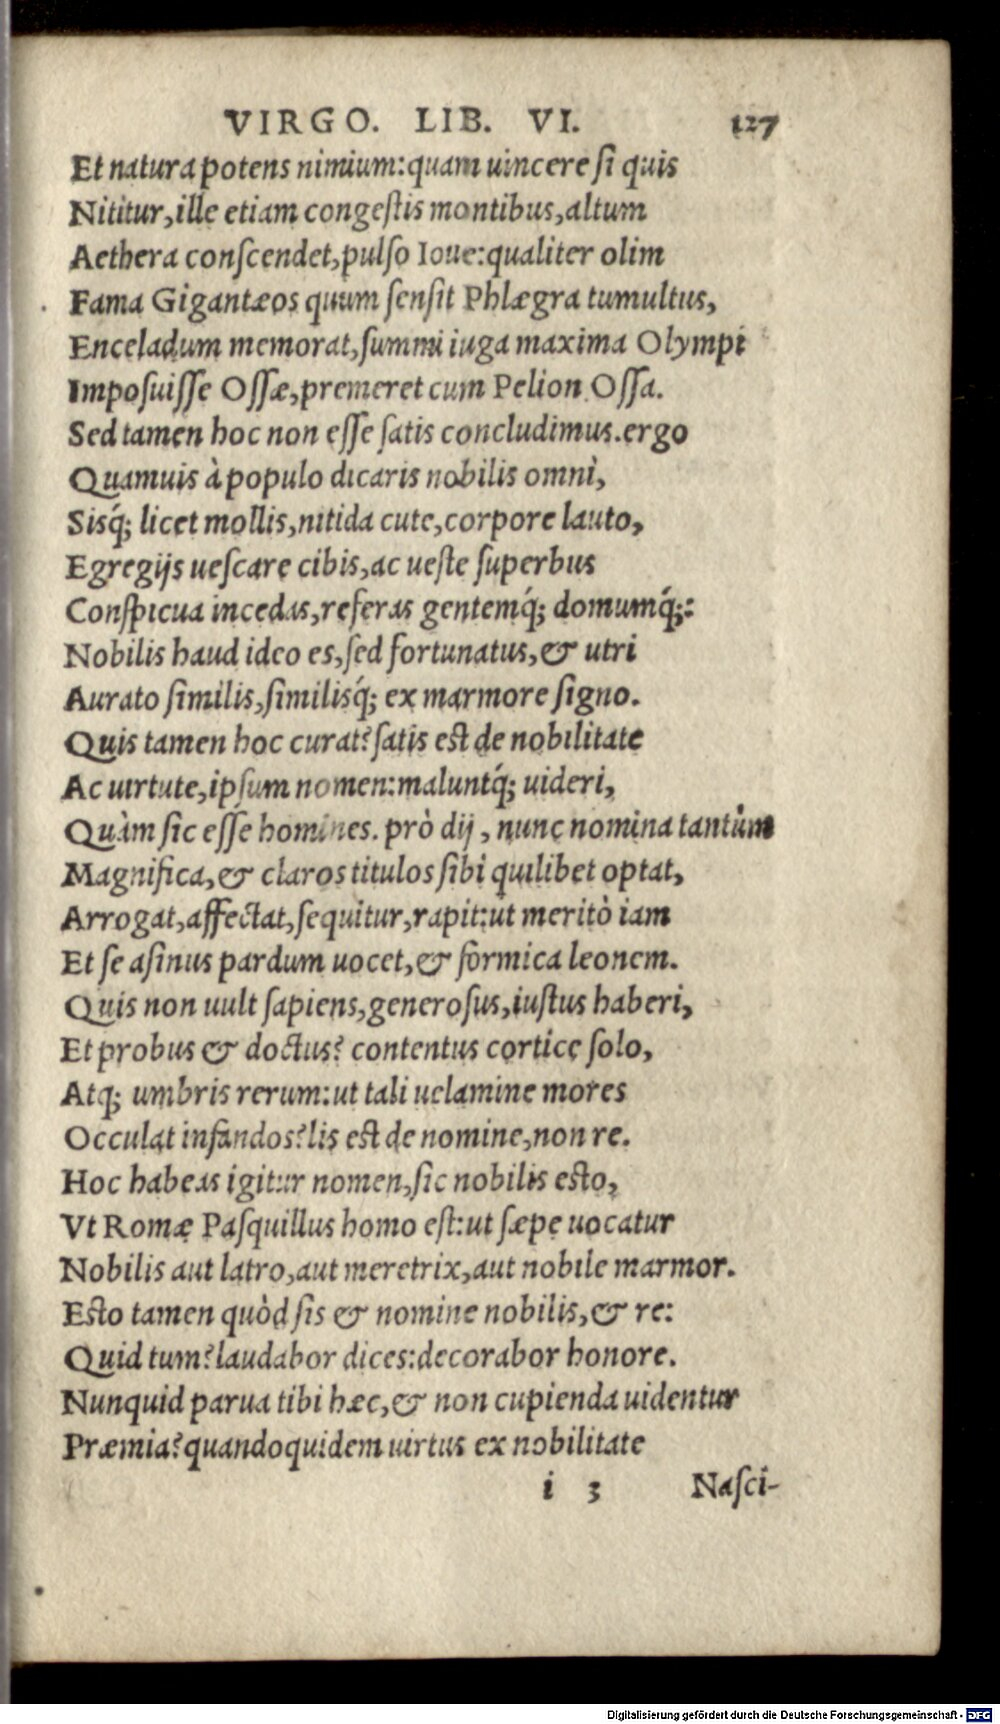 VIRGO. LIB. VI. 127
Et natura potens nimium:quam uincere si quis
Nititur,ille etiam congestis montibus,altum
Aethera conscendet,pulso Ioue:qualiter olim
Fama Gigantæos quum sensit Phlægra tumultus,
Enceladum memorat,summi iuga maxima Olympi
Imposuisse Ossæ,premeret cum Pelion Ossa.
Sed tamen hoc non esse satis concludimus.ergo
Quamuis à populo dicaris nobilis omni,
Sisq́; licet mollis,nitida cute,corpore lauto,
Egregijs uescare cibis,ac ueste superbus
Conspicua incedas,referas gentemq́; domumq́;:
Nobilis haud ideo es,sed fortunatus,& utri
Aurato similis,similisq́; ex marmore signo.
Quis tamen hoc curat?satis est de nobilitate
Ac uirtute,ipsum nomen:maluntq́; uideri,
Quàm sic esse homines. prò dij, nunc nomina tantùm
Magnifica,& claros titulos sibi quilibet optat,
Arrogat,affectat,sequitur,rapit:ut meritò iam
Et se asinus pardum uocet,& formica leonem.
Quis non uult sapiens,generosus,iustus haberi,
Et probus & doctus? contentus cortice solo,
Atq; umbris rerum:ut tali uelamine mores
Occulat infandos?lis est de nomine,non re.
Hoc habeas igitur nomen,sic nobilis esto,
Vt Romæ Pasquillus homo est:ut sæpe uocatur
Nobilis aut latro,aut meretrix,aut nobile marmor.
Esto tamen quòd sis & nomine nobilis,& re:
Quid tum?laudabor dices:decorabor honore.
Nunquid parua tibi hæc,& non cupienda uidentur
Præmia?quandoquidem uirtus ex nobilitate
i 3 Nasci-
Digitalisierung gefördert durch die Deutsche Forschungsgemeinschaft - DFG